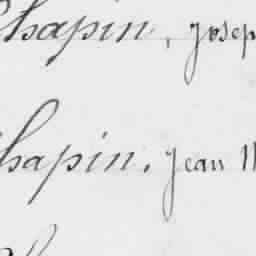 Chapin, Josep
Chapin, Jean M